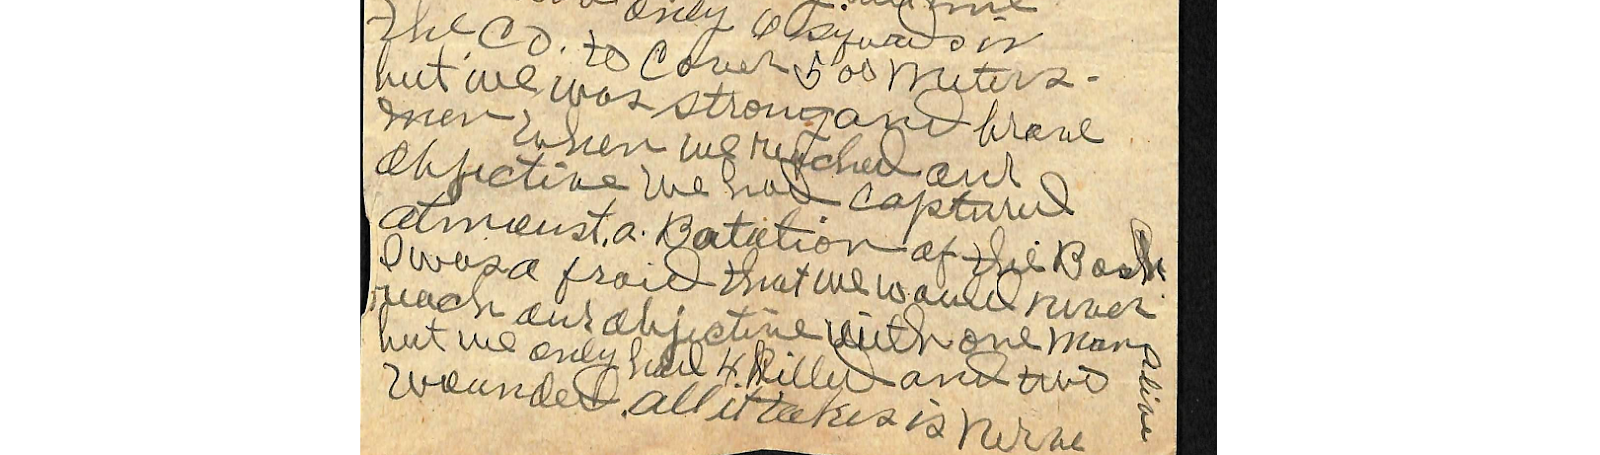 only 6 squads in
the CO. to Cover 500 Meters-
but we was strong and brave
men when we reached our
objective we had captured
atmoust. a. Batation of the Bosh.
I was a fraid that we would never
reach our objective with one man alive
but we only had 4. Killed and two
wounded. all it takes is nerve